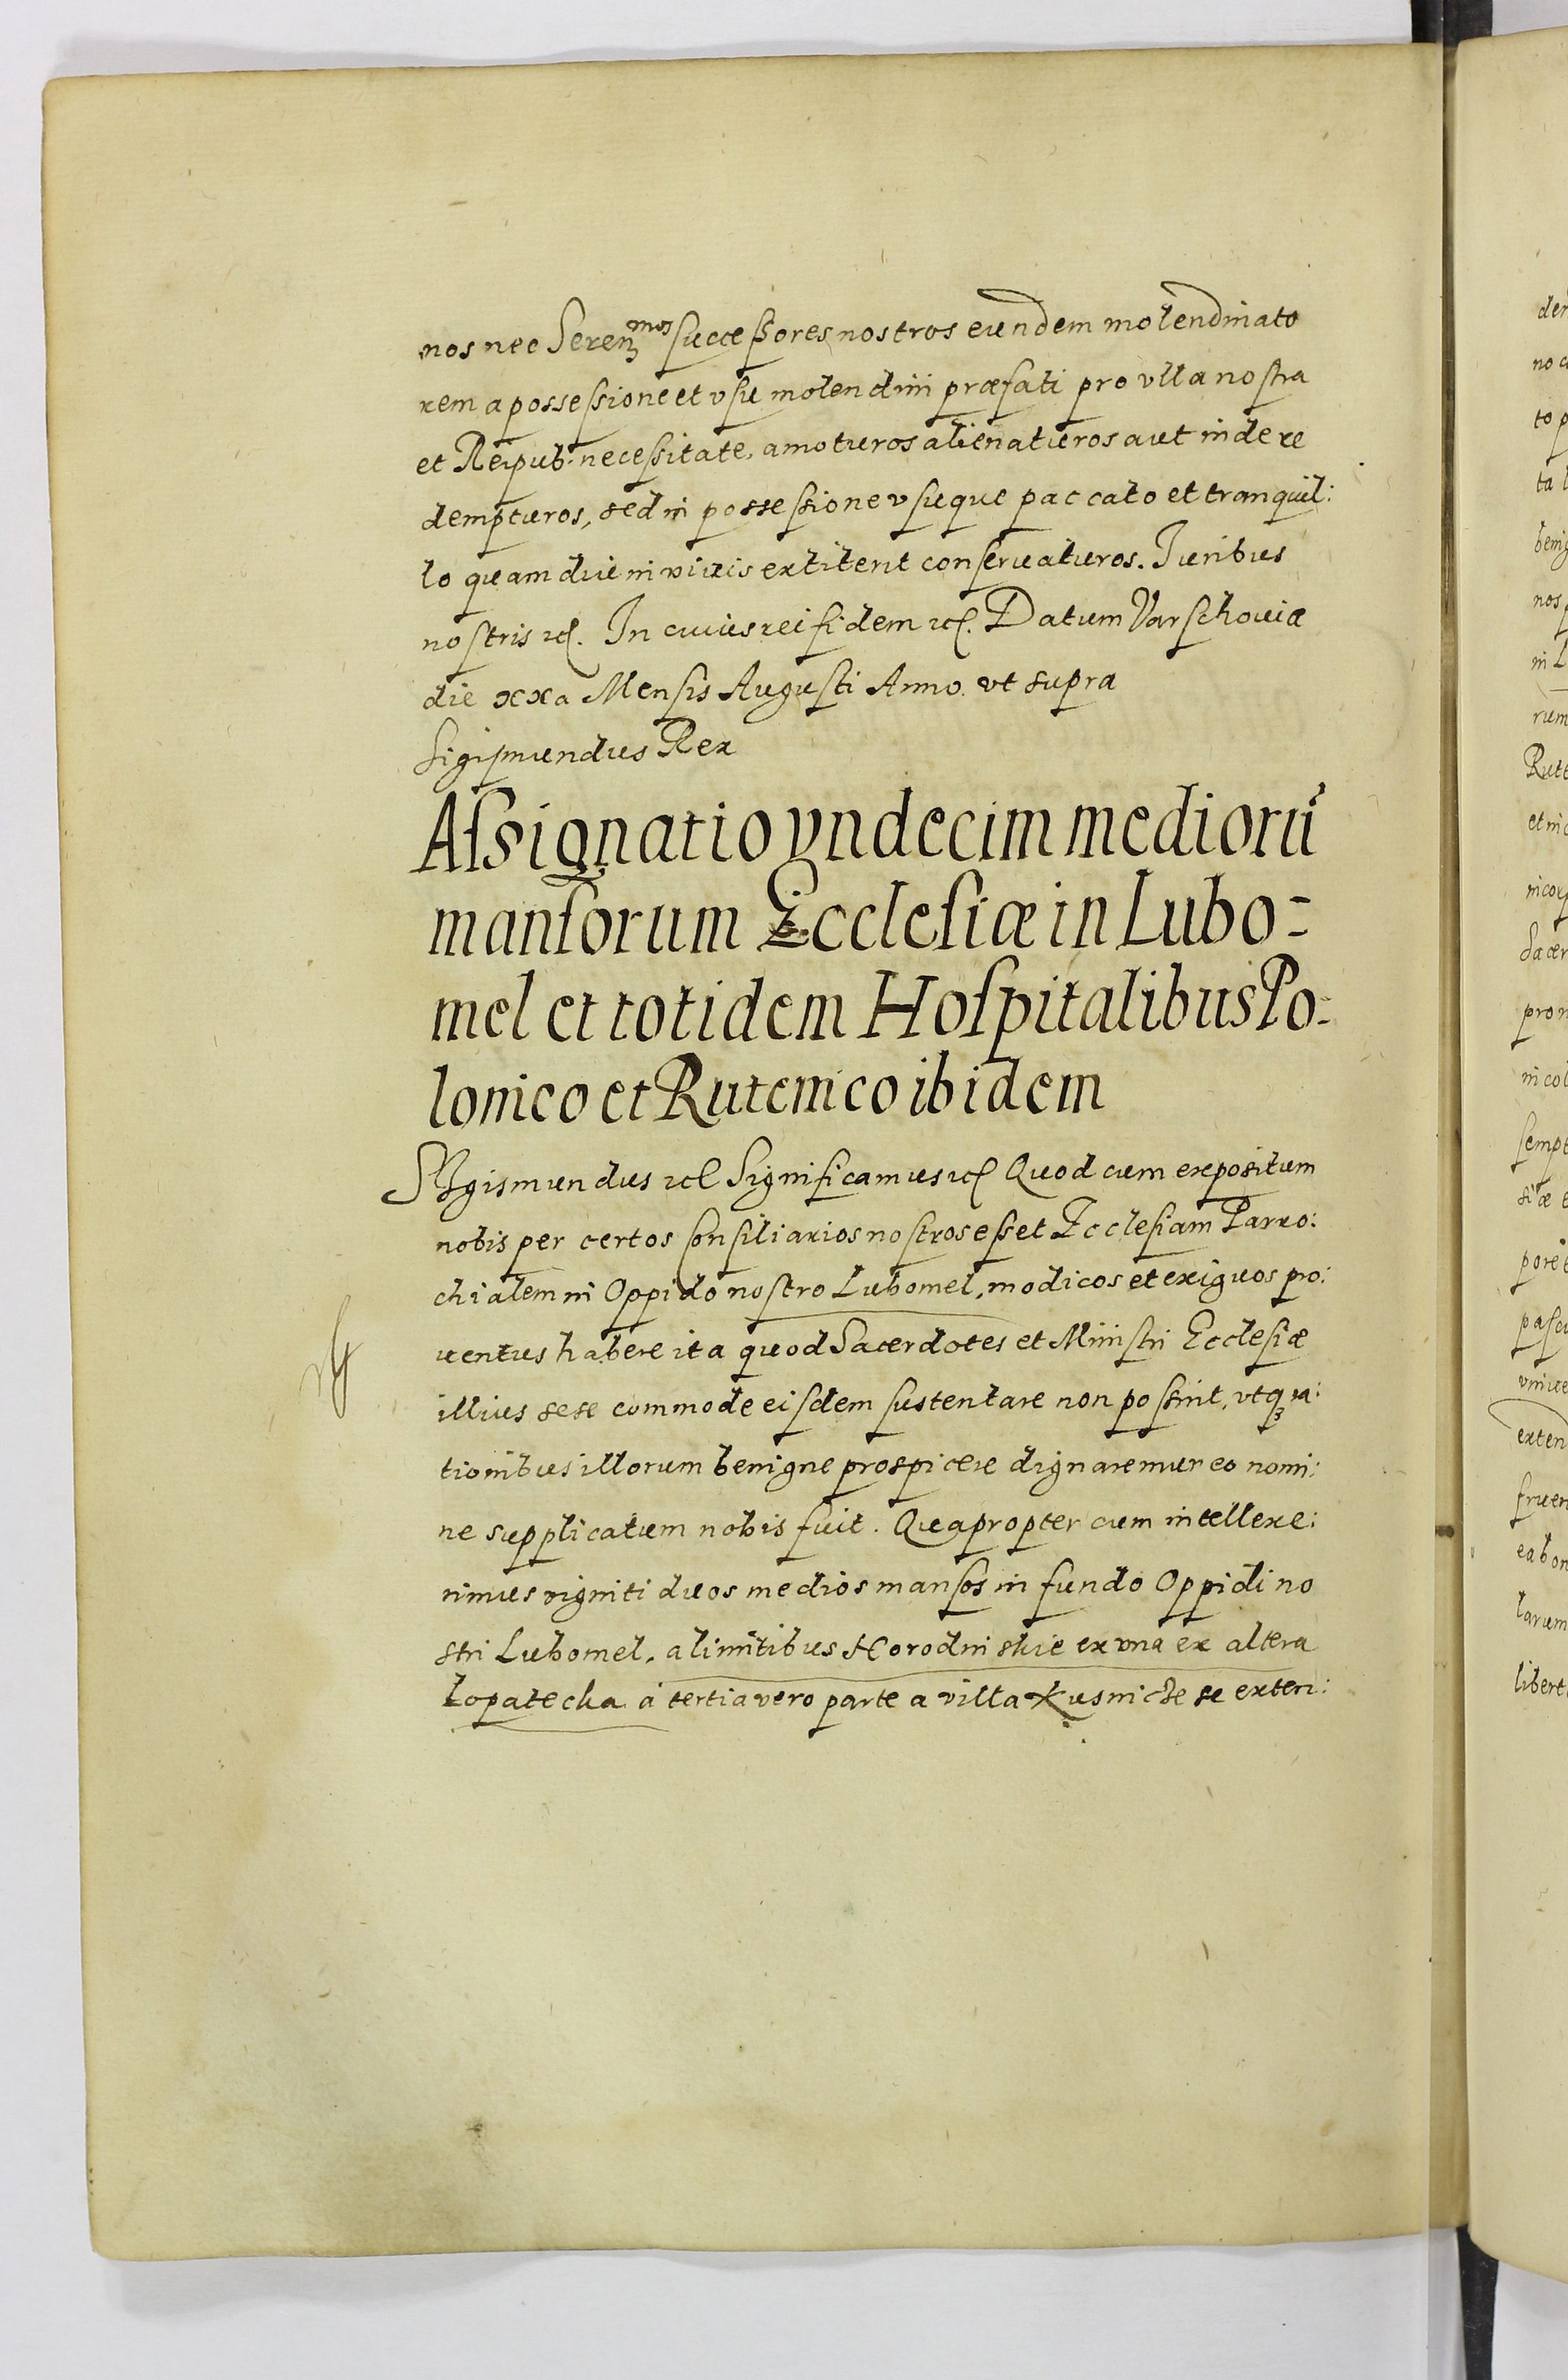 nos nec Serenmos successores nostros eundem molendinato
rem a possessione et vsu molendini præfati pro vlla nostra
et Reipub. necessitate, amoturos alienaturos aut inde re
dempturos, sed in possessione vsuque paccato et tranquil:
lo quamdiu in viuis extiterit conseruaturos. Iuribus
nostris etc. In cuius rei fidem etc. Datum Varschouiæ
die xxa Mensis Augusti Anno vt supra
Sigismundus Rex
Assignatio vndecim mediorū
mansorum Ecclesiæ in Lubo=
mel et totidem Hospitalibus Po=
lonico et Rutenico ibidem
Sigismundus etc Significamus etc Quod cum expositum
nobis per certos Consiliarios nostros esset Ecclesiam Parro:
chialem in Oppido nostro Lubomel, modicos et exiguos pro:
uentus habere ita quod Sacerdotes et Ministri Ecclesiæ
illius sese commode eisdem sustentare non possint, vtq3 ra:
tionibus illorum benigne prospicere dignaremur eo nomi:
ne supplicatum nobis fuit. Quapropter cum intellexe:
rimus viginti duos medios mansos in fundo Oppidi no
stri Lubomel, a limitibus Horodniskie ex vna ex altera
Lopatecha á tertia vero parte a villa Kusnicze se exten:
der
no
to p
ta
benig
nos
in L
rum
Rutt
et in
incorp
Sacer
pro
in col
semp
siæ
pore
pascu
vniue
exten
fruen
ea bon
larum
libert